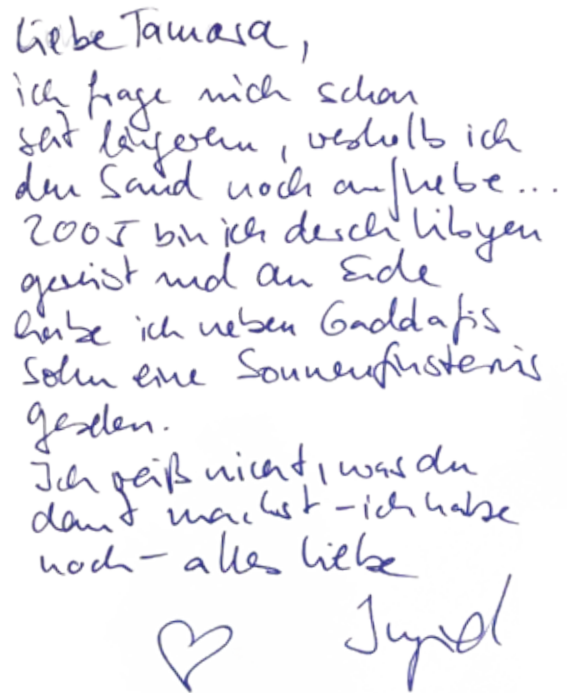 Liebe Tamara,
ich frage mich schon
seit längerem, weshalb ich
den Sand noch aufhebe...
2005 bin ich durch Libyen
gereist und am Ende
habe ich neben Gaddafis
Sohn eine Sonnenfinsternis
gesehen.
Ich weiß nicht, was du
damit machst - ich habe
noch - alles Liebe
Ingrid